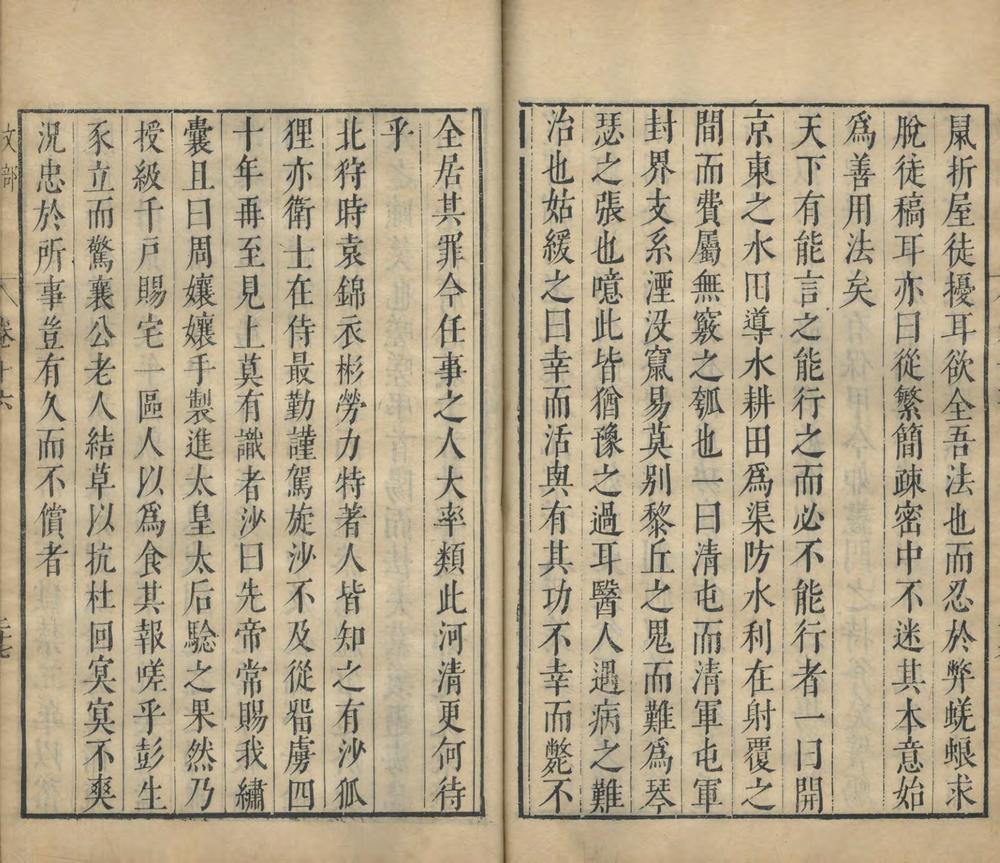 鼠折屋徒擾耳欲全吾法也而忍於弊蜣蜋求
脫徒稿耳亦曰從繁簡疎密中不迷其本意始
爲善用法矣
天下有能言之能行之而必不能行者一曰開
京東之水田導水耕田爲渠防水利在射覆之
間而費屬無竅之瓠也一曰清屯而清軍屯軍
封界支系湮没竄易莫别黎丘之鬼而難爲琴
瑟之張也噫此皆猶豫之過耳醫人遇病之難
治也姑緩之曰幸而活與有其功不幸而斃不
全居其罪今任事之人大率類此河清更何待
乎
北狩時袁錦衣彬勞力特著人皆知之有沙狐
狸亦衛士在侍最勤謹駕旋沙不及從㽞虜四
十年再至見上莫有識者沙曰先帝常賜我繡
囊且曰周孃孃手製進太皇太后驗之果然乃
授級千戸賜宅一區人以爲食其報嗟乎彭生
豕立而驚襄公老人結草以抗杜回冥冥不爽
況忠於所事豈有久而不償者
文部
卷十六
二十七